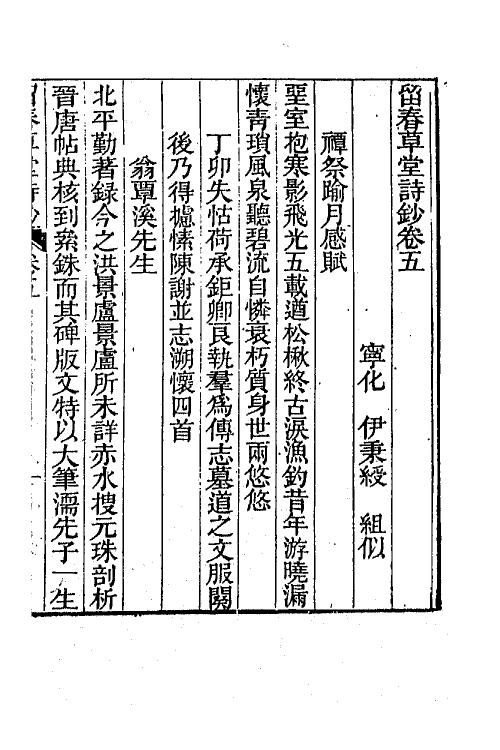 留春草堂詩鈔卷五
寧化 伊秉綬 組似
禫祭踰月感賦
堊室抱寒影飛光五載遒松楸終古淚漁釣昔年游曉漏
懷靑瑣風泉聽碧流自憐衰朽質身世兩悠悠
丁卯失怙荷承鉅卿良執羣爲傳志墓道之文服闋
後乃得攄愫陳謝並志溯懷四首
翁覃溪先生
北平勤著錄今之洪景盧景盧所未詳赤水搜元珠剖析
晉唐帖典核到絫銖而其碑版文特以大筆濡先子一生
留春草堂詩鈔 卷五